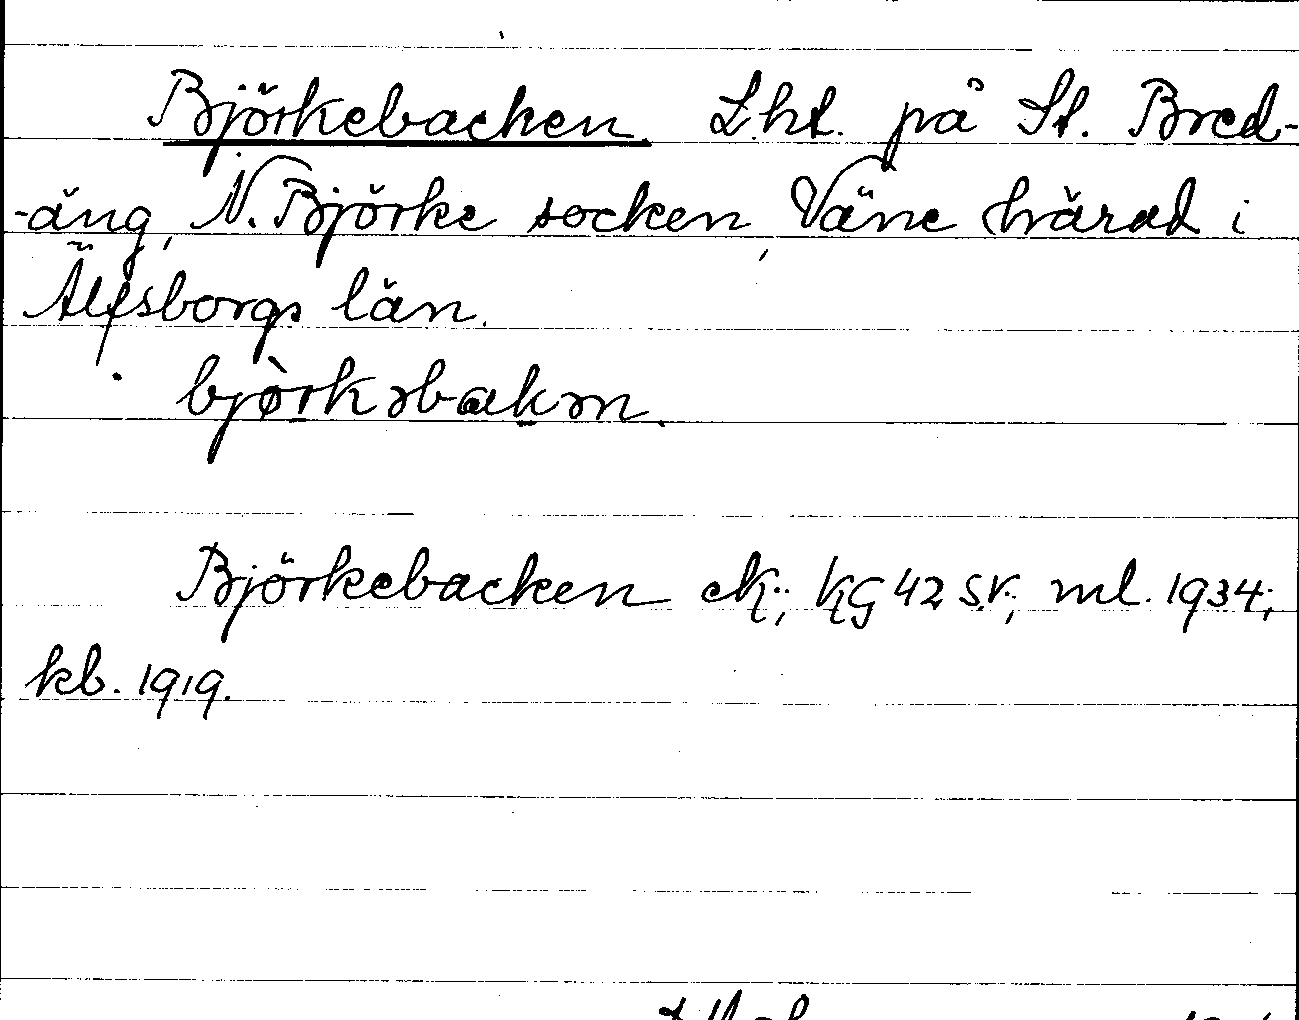 Björkebacken. Lht. på St. Bred-
-äng, N. Björke socken, Väne härad i
Älfsborgs län.
bjòrkəbakən.
Björkebacken ek.; KG 42 SV.; ml. 1934;
kb. 1919.